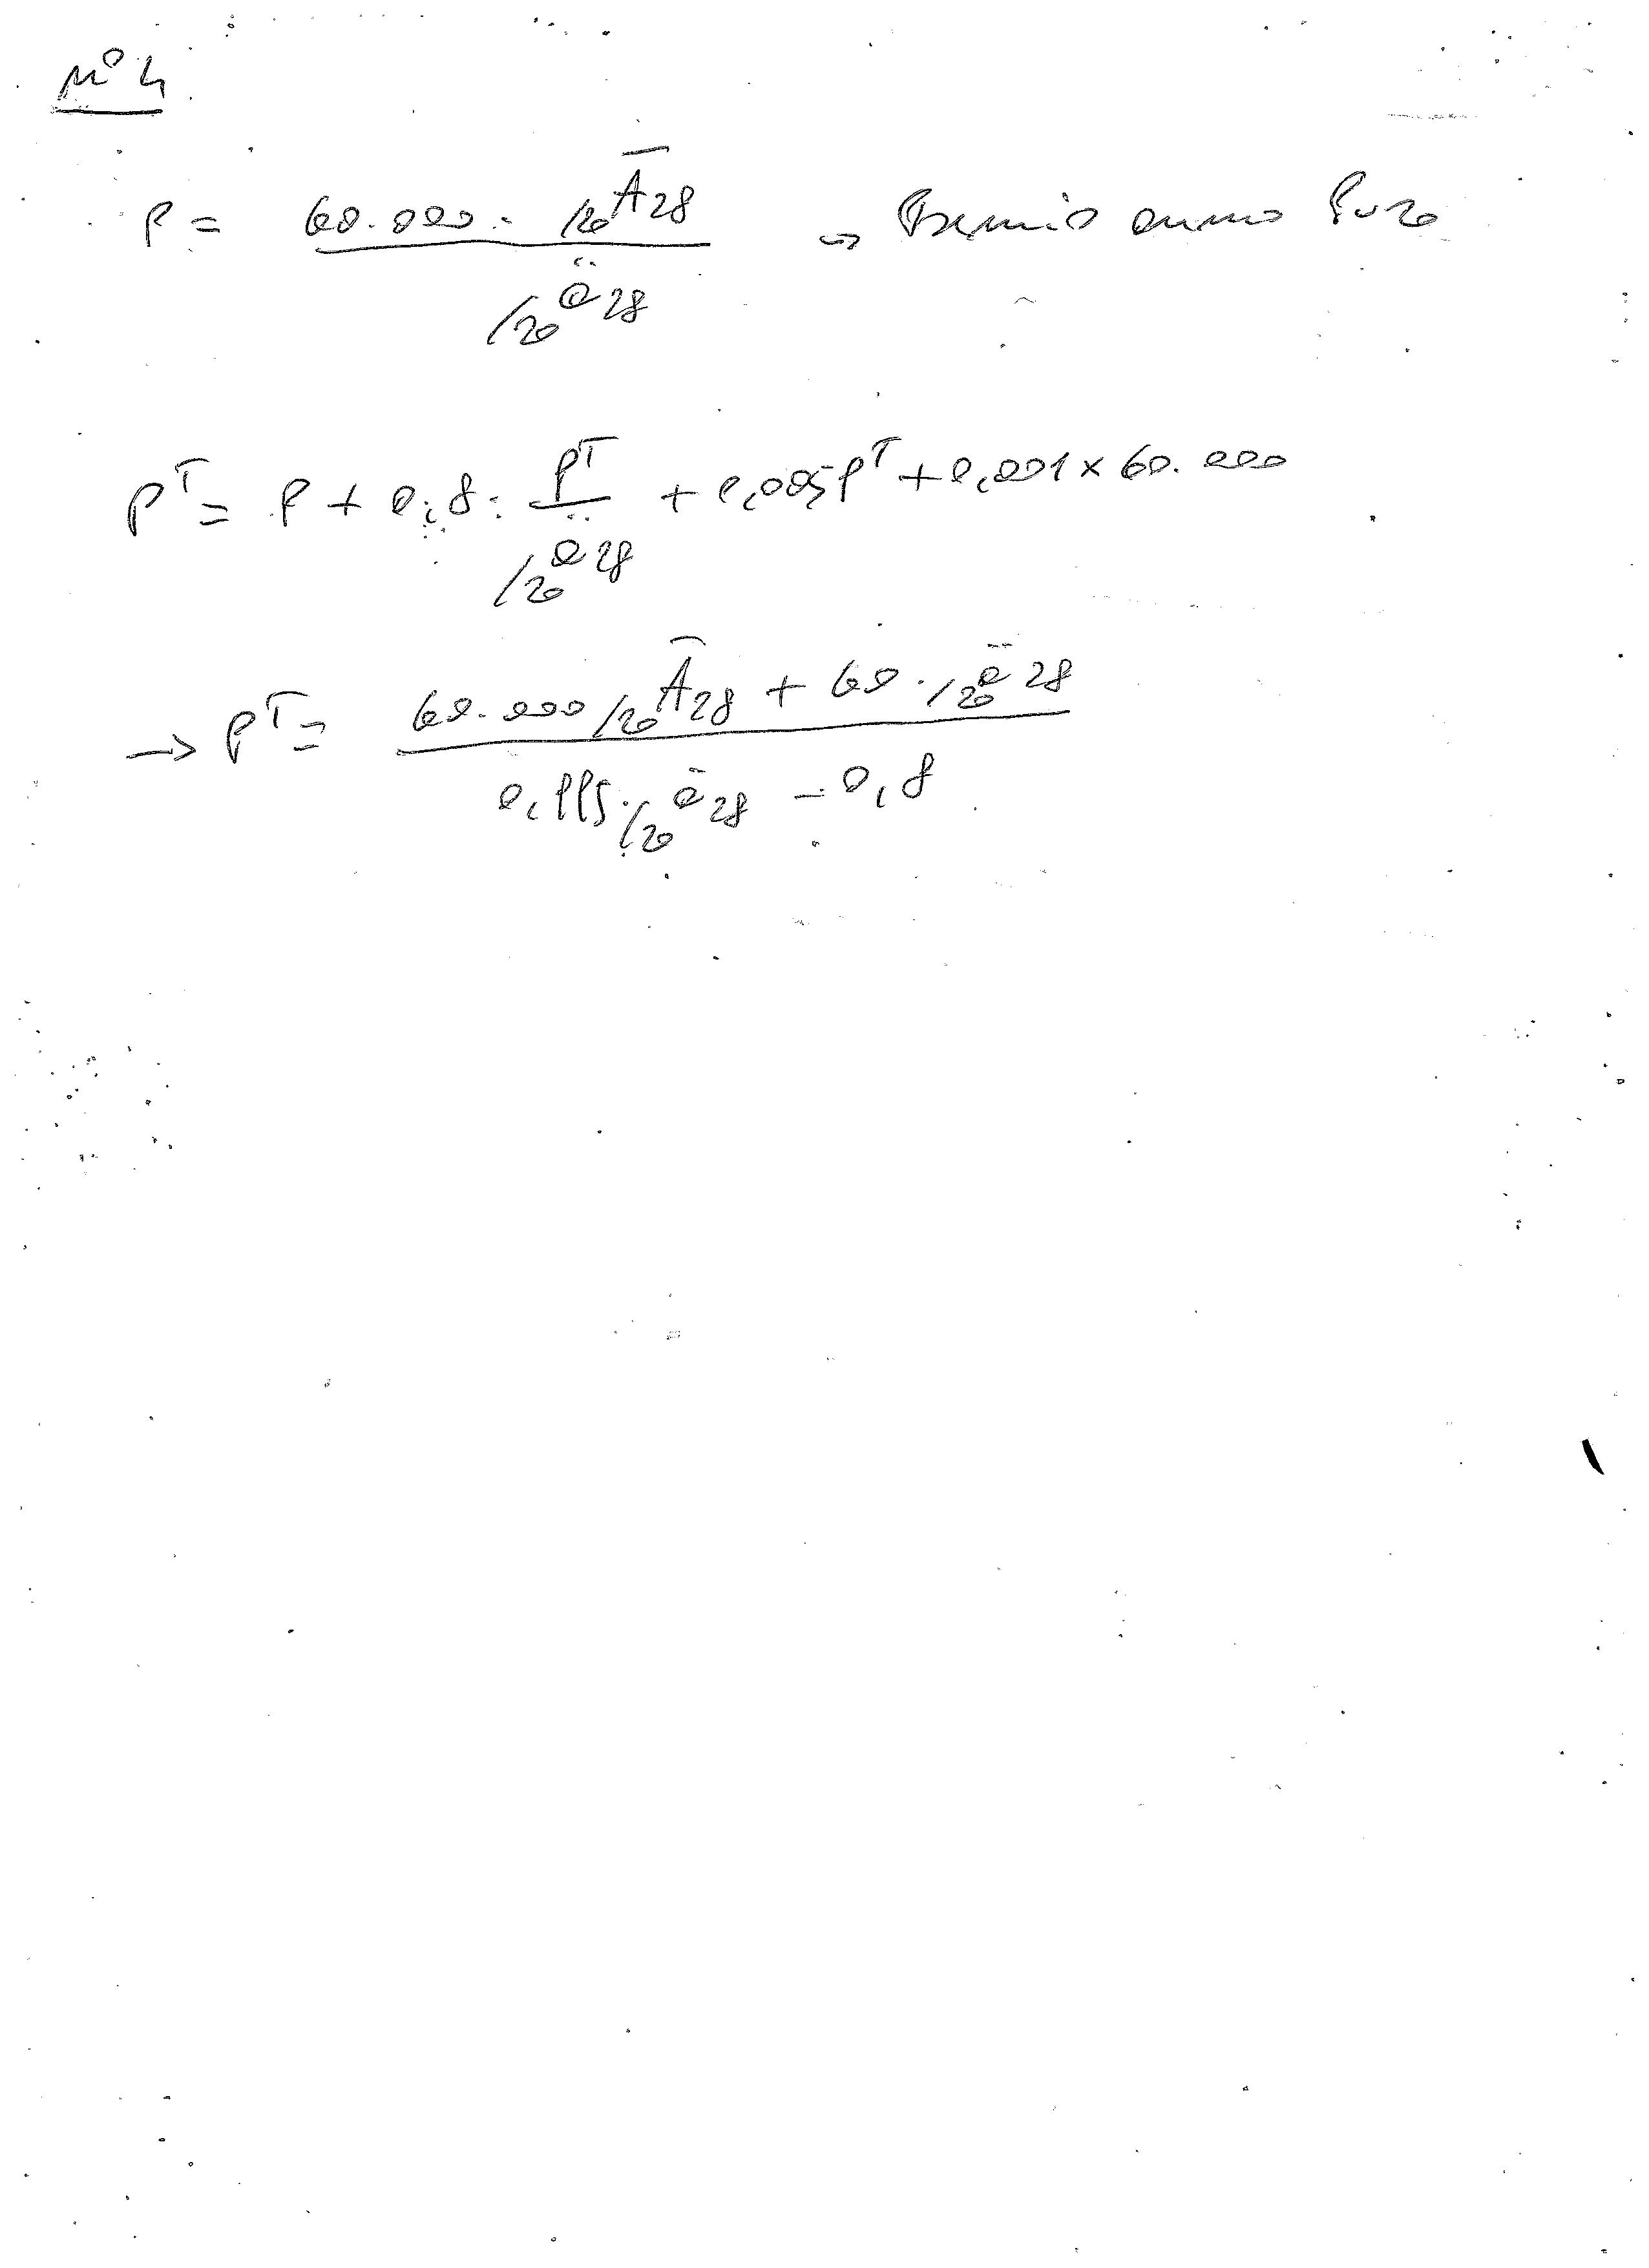 N° 4
P = 60.000 · /20 Ā 28 / /20 ä 28 → Premio annuo Puro
P^T = P + 0,8 · P^T / /20 ä 28 + 0,005 P^T + 0,001 x 60.000
→ P^T = 60.000 /20 Ā 28 + 60 · /20 ä 28 / 0,995 · /20 ä 28 - 0,8